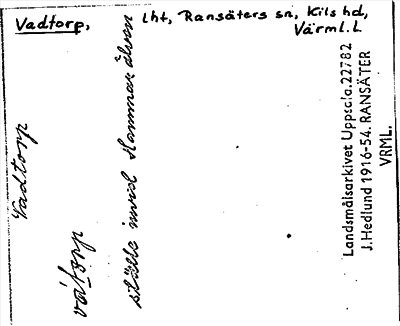 Vadtorp, lht, Ransäters sn, Kils hd,
Värml. L
Vadtorp
våtorp
ställe invid Hammar älven
Landsmålsarkivet Uppsala.22782
J.Hedlund 1916-54. RANSÄTER
VRML.